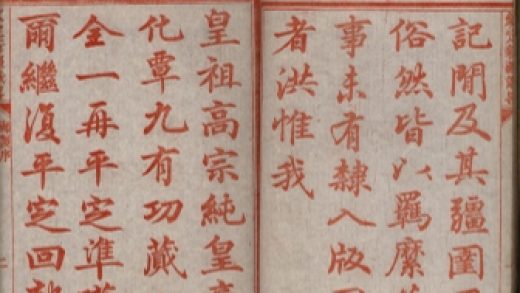 記聞及其疆圉
俗然皆以羈縻
事未有隸入版
者洪惟我
皇祖高宗純皇
化覃九有功蕆
全一再平定準
爾繼復平定回